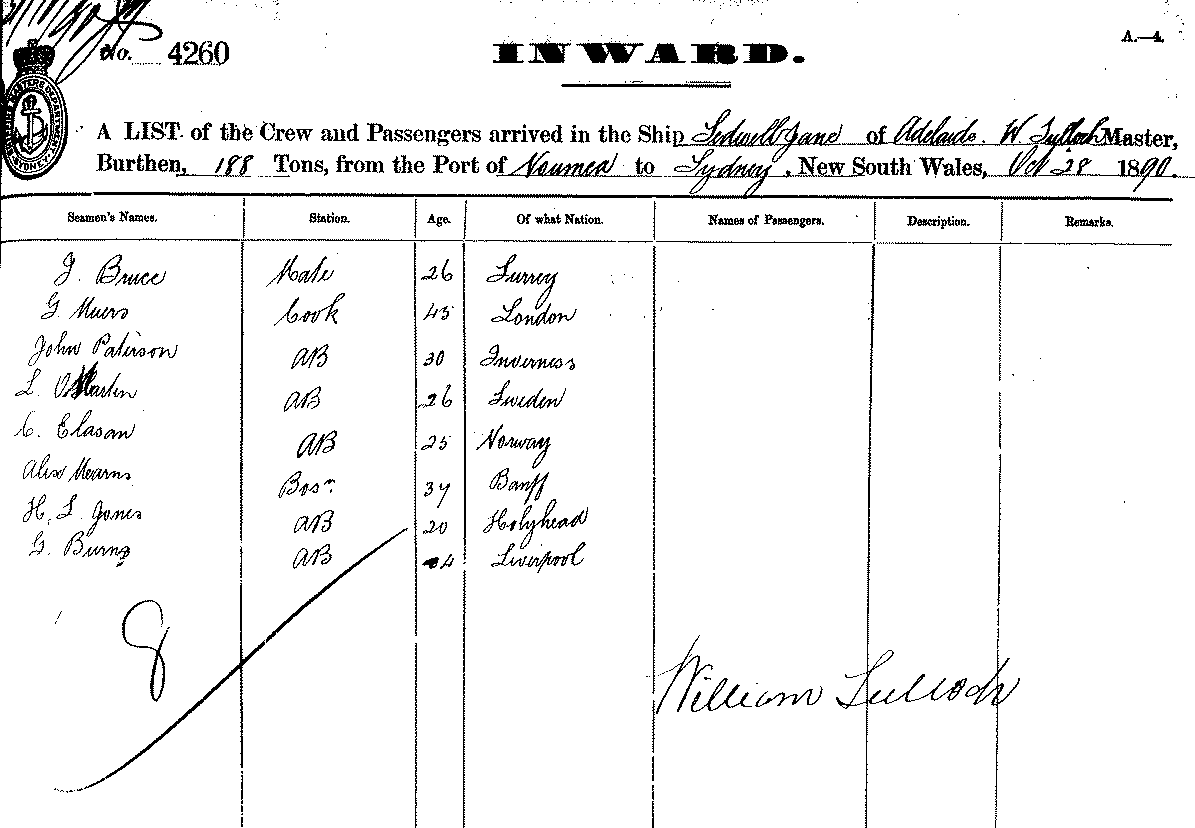 No. 4260
INWARD.
A.—4.
A LIST of the Crew and Passengers arrived in the Ship Sedwell Jane of Adelaide. W Tulloch Master,
Burthen, 188 Tons, from the Port of Noumea to Sydney, New South Wales, Oct 28 1890.
Seamen's Names. Station. Age. Of what Nation. Names of Passengers. Description. Remarks.
J. Bruce Mate 26 Surrey
G. Muers Cook 45 London
John Paterson AB 30 Inverness
L. Martin AB 26 Sweden
C. Elasan AB 25 Norway
Alex Mearns Bosn 37 Banff
H. L. Jones AB 20 Holyhead
G. Burns AB Liverpool
8
William Tulloch